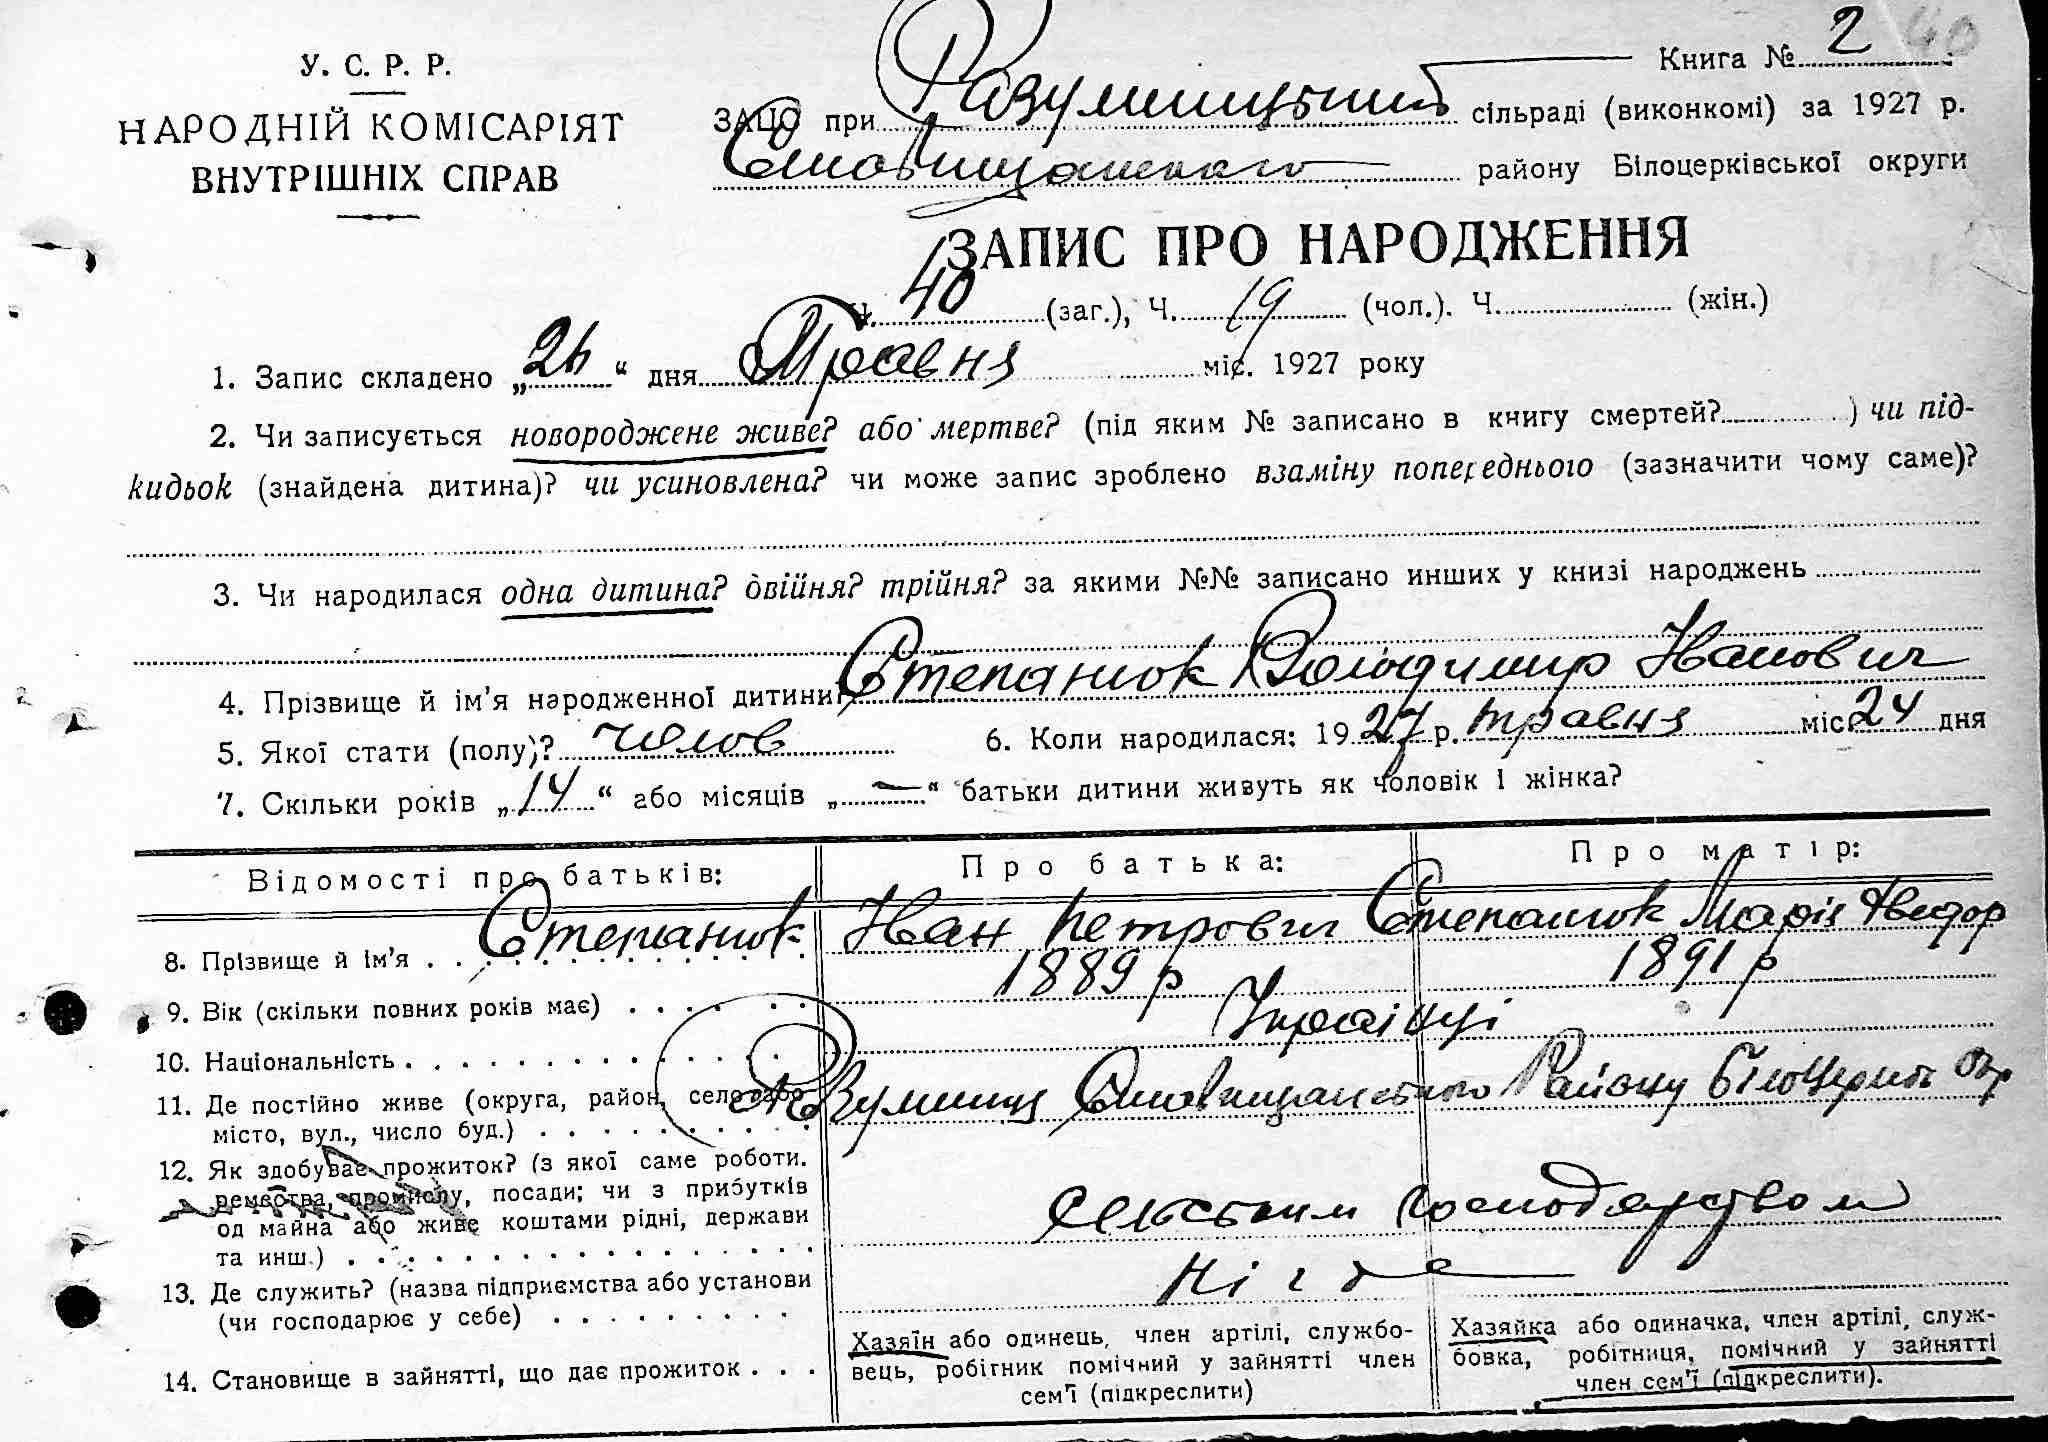 У. С. Р. Р.
НАРОДНІЙ КОМІСАРІЯТ
ВНУТРІШНІХ СПРАВ
Книга № 2 40
ЗАЦС при Розумницький сільраді (виконкомі) за 1927 р.
району Білоцерківської округи
ЗАПИС ПРО НАРОДЖЕННЯ
Ч. 40 (заг.), Ч. 19 (чол.). Ч. (жін.)
1. Запис складено „26“ дня Травня міс. 1927 року
2. Чи записується новороджене живе? або мертве? (під яким № записано в книгу смертей? ) чи під-
кидьок (знайдена дитина)? чи усиновлена? чи може запис зроблено взаміну попереднього (зазначити чому саме)?
3. Чи народилася одна дитина? двійня? трійня? за якими №№ записано инших у книзі народжень
4. Прізвище й ім'я народженної дитини Степанюк Володимир Іванович
5. Якої стати (полу)? чолов 6. Коли народилася: 1927 р. травня міс. 24 дня
7. Скільки років „14“ або місяців „—“ батьки дитини живуть як чоловік і жінка?
Відомості про батьків: Про батька: Про матір:
8. Прізвище й ім'я Степанюк Іван Петрович Степанюк Марія Хведор
9. Вік (скільки повних років має) 1889 р 1891 р
10. Національність Украінці
11. Де постійно живе (округа, район, село або Розумниц Району Білоцерків Окр
місто, вул., число буд.)
12. Як здобуває прожиток? (з якої саме роботи.
ремества, промислу, посади; чи з прибутків
од майна або живе коштами рідні, держави сельським господарством
та инш.)
13. Де служить? (назва підприємства або установи Нігде
(чи господарює у себе)
14. Становище в зайнятті, що дає прожиток
Хазяїн або одинець, член артілі, службо-
вець, робітник помічний у зайнятті член
сем'ї (підкреслити)
Хазяйка або одиначка, член артілі, служ-
бовка, робітниця, помічний у зайнятті
член сем'ї (підкреслити).